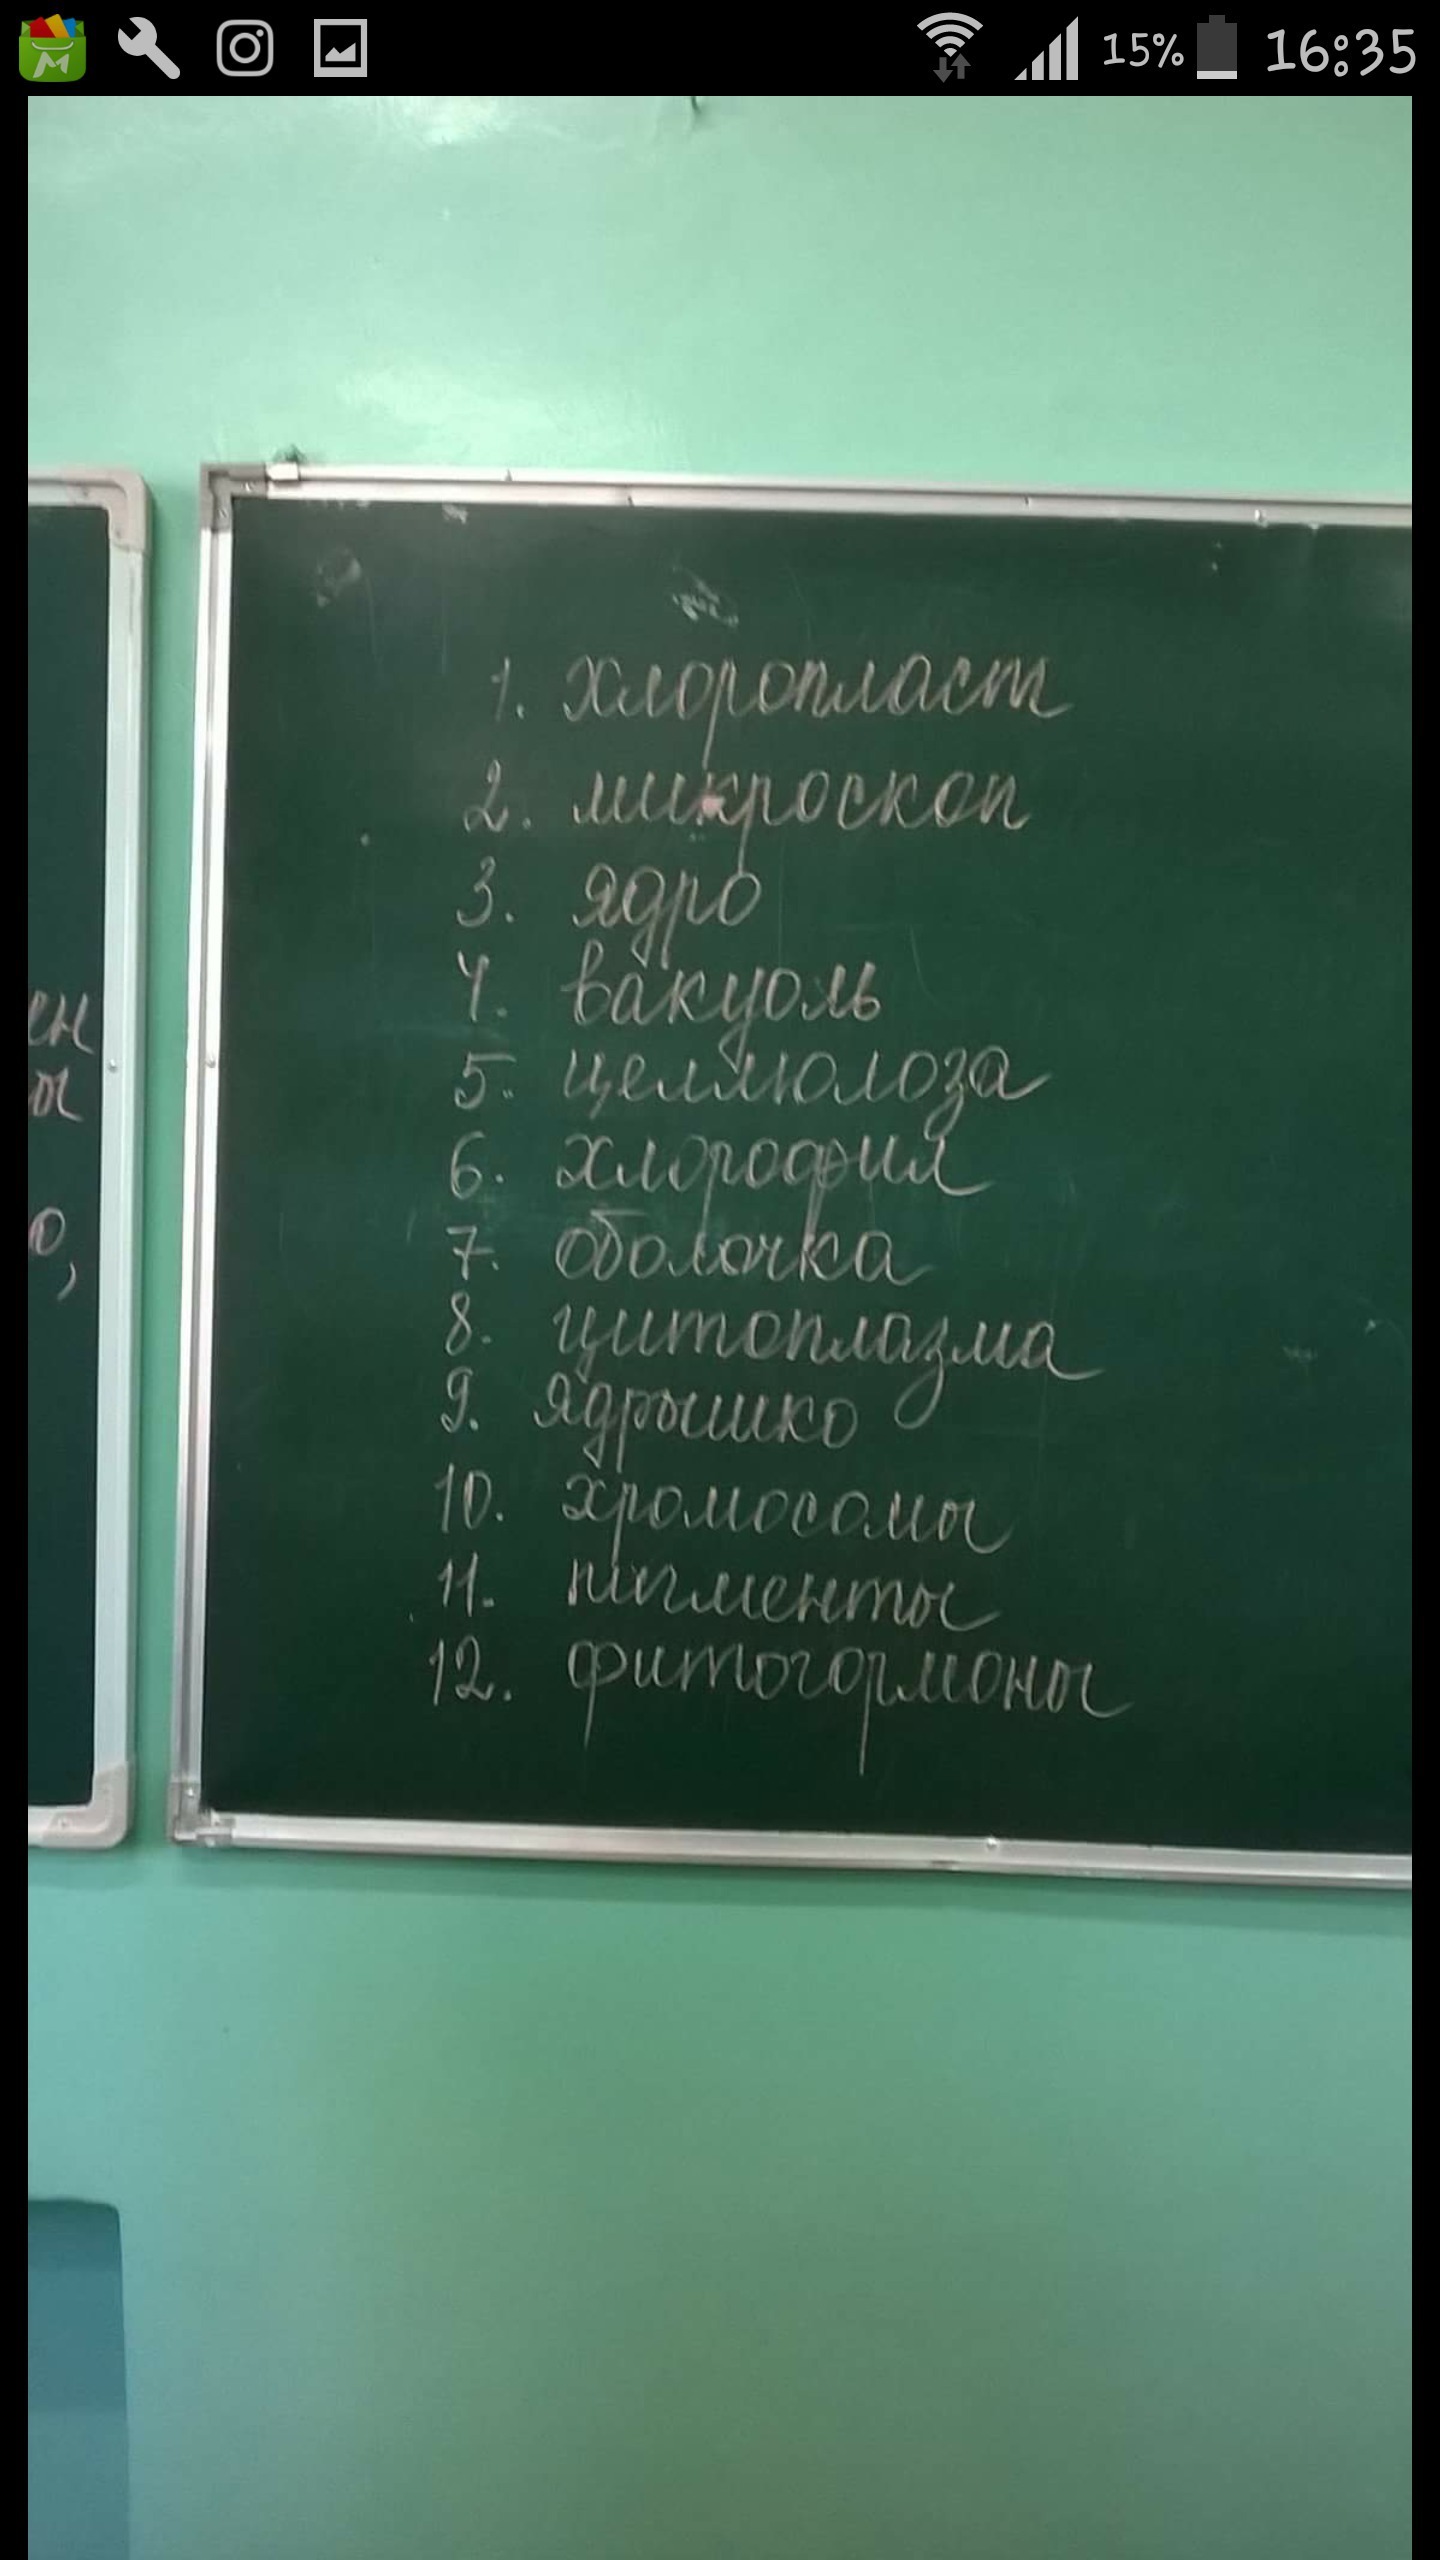 15% 16:35
1. хлоропласт
2. микроскоп
3. ядро
4. вакуоль
ен
5. целлюлоза
ы
6. хлорофил
о,
7. оболочка
8. цитоплазма
9. ядрышко
10. хромосомы
11. пигменты
12. фитогормоны